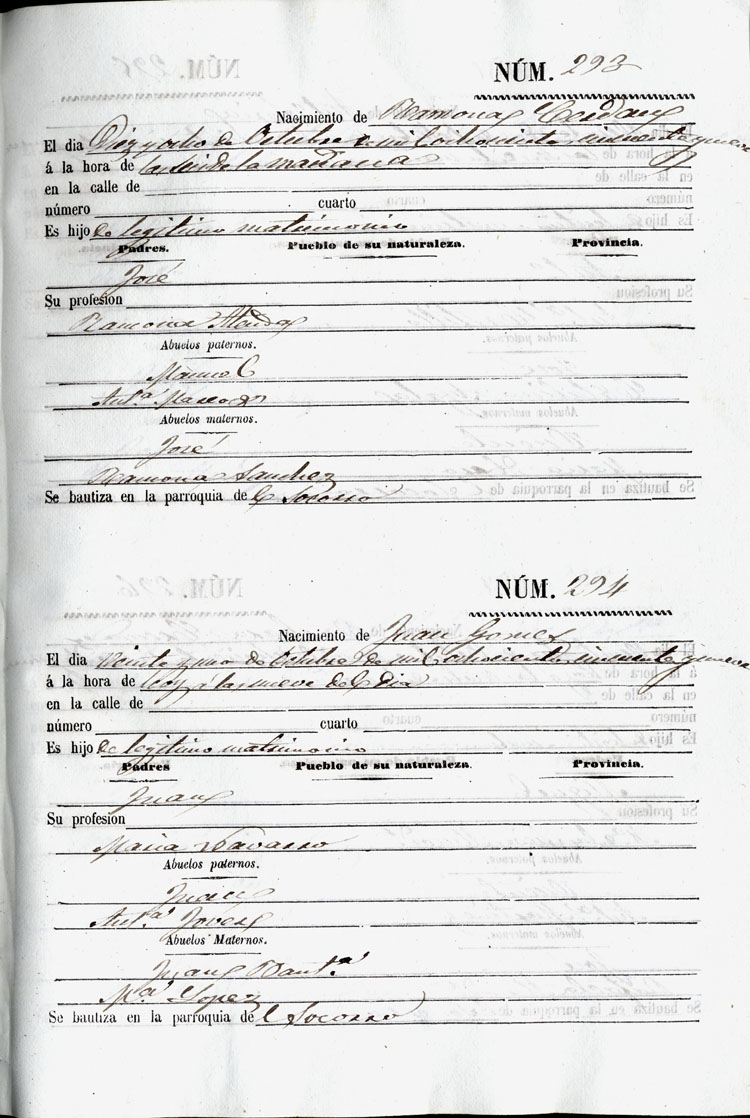 NÚM. 293
Nacimiento de Ramona Cerdan
El dia Diez y ocho de Octubre de mil ochocientos cincuenta y nueve
á la hora de las seis de la mañana
en la calle de
número cuarto
Es hijo de legitimo matrimonio
Padres. Pueblo de su naturaleza. Provincia.
José
Su profesion
Ramona
Abuelos paternos.
Manuel
Ant.ª
Abuelos maternos.
José
Ramona Sanchez
Se bautiza en la parroquia de el Socorro
NÚM. 294
Nacimiento de Juan Gomez
El dia Veinte y uno de Octubre de mil ochocientos cincuenta y nueve
á la hora de hoy á las nueve del dia
en la calle de
número cuarto
Es hijo de legitimo matrimonio
Padres Pueblo de su naturaleza. Provincia.
Juan
Su profesion
Maria Navarro
Abuelos paternos.
Juan
Ant.ª
Abuelos Maternos.
Juan Baut.ª
M.ª Lopez
Se bautiza en la parroquia de el Socorro